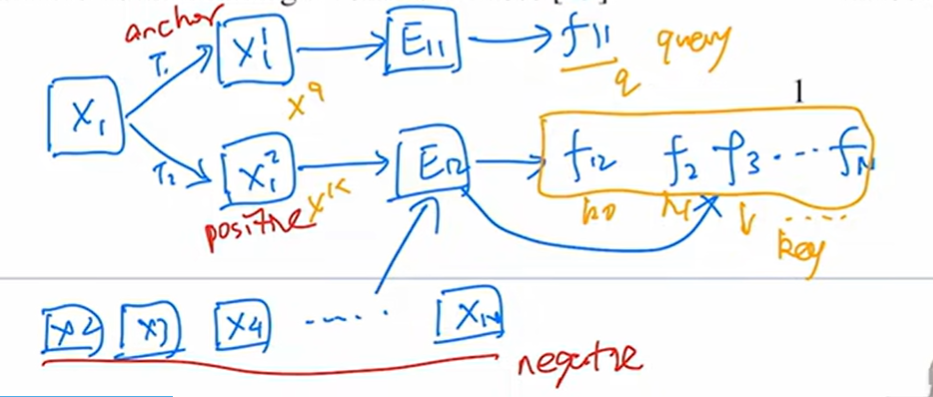 anchor
T₁
X₁¹
E₁₁
f₁₁
query
q
x^q
1
X₁
T₂
X₁²
E₁₂
f₁₂ f₂ f₃ ... f_N
x^k
positive
k₀ k₁ ......
key
X₂ X₃ X₄ ...... X_N
negative